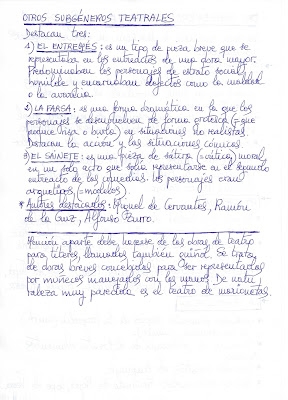 OTROS SUBGÉNEROS TEATRALES
Destacan tres:
1) EL ENTREMÉS: es un tipo de pieza breve que se
representaba en los entreactos de una obra mayor.
Predominaban los personajes de estrato social
humilde y encarnaban defectos como la maldad
o la avaricia.
2) LA FARSA: es una forma dramática en la que los
personajes se desenvuelven de forma grotesca (= que
produce risa o burla) en situaciones no realistas.
Destacan la acción y las situaciones cómicas.
3) EL SAINETE: es una pieza de sátira (=crítica) moral
en un solo acto que solía representarse en el segundo
entreacto de las comedias. Los personajes eran
arquetipos (=modelos).
* Autores destacados: Miguel de Cervantes, Ramón
de la Cruz, Alfonso Zurro.
Mención aparte debe hacerse de las obras de teatro
para títeres, llamados también guiñol. Se trata
de obras breves concebidas para ser representadas
por muñecos manejados con las manos. De natu
raleza muy parecida es el teatro de marionetas.